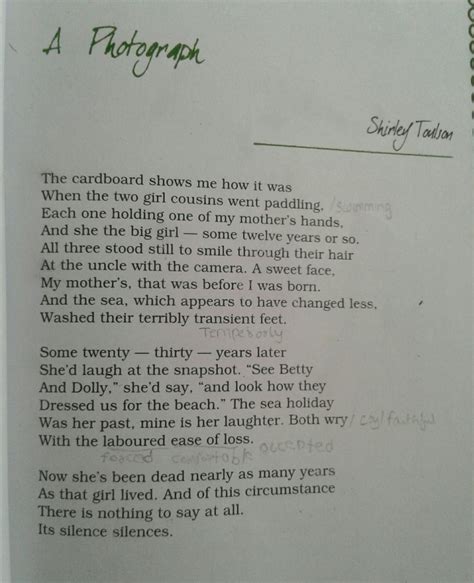 A Photograph
Shirley Toulson
The cardboard shows me how it was
When the two girl cousins went paddling, /swimming
Each one holding one of my mother's hands,
And she the big girl — some twelve years or so.
All three stood still to smile through their hair
At the uncle with the camera. A sweet face,
My mother's, that was before I was born.
And the sea, which appears to have changed less,
Washed their terribly transient feet.
Some twenty — thirty — years later
She'd laugh at the snapshot. "See Betty
And Dolly," she'd say, "and look how they
Dressed us for the beach." The sea holiday
Was her past, mine is her laughter. Both wry
With the laboured ease of loss. accepted
forced comfortable
Now she's been dead nearly as many years
As that girl lived. And of this circumstance
There is nothing to say at all.
Its silence silences.